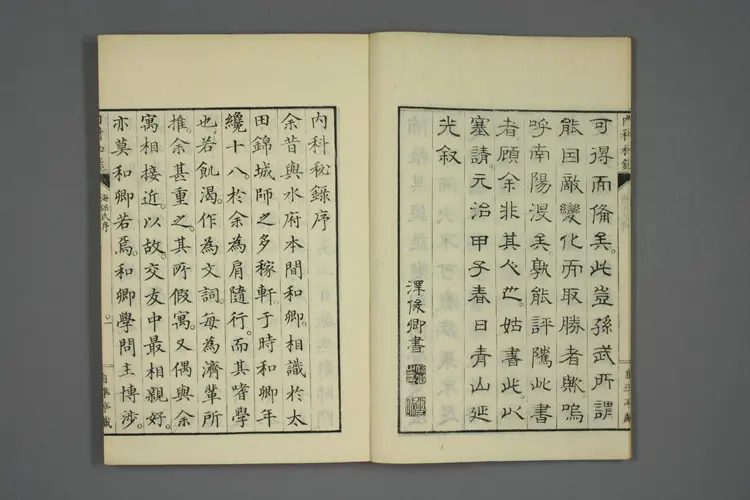 可得而備矣。此豈孫武所謂
能因敵變化而取勝者歟。嗚
呼南陽漫矣。孰能評隲此書
者。顧余非其人也。姑書此。以
塞請。元治甲子春日青山延
光叙
澤俊卿書
內科秘錄序
余昔與水府本間和卿。相識於太
田錦城師之多稼軒。于時和卿年
纔十八。於余為肩隨行。而其嗜學
也。若飢渴。作為文詞。每為濟輩所
推。余甚重之。其所假寓。又偶與余
寓相接近。以故。交友中最相親好。
亦莫和卿若焉。和卿學問主博涉。